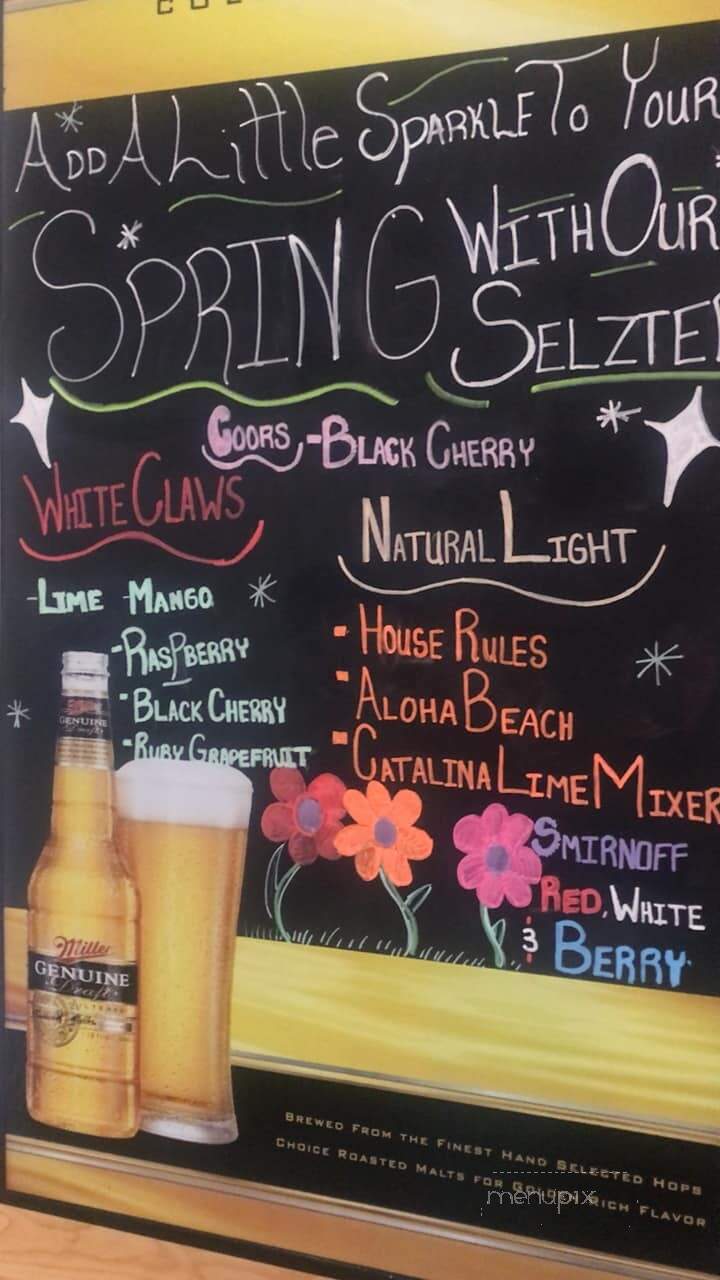 Add A Little Sparkle To Your
Spring With Our
Selzte
Coors - Black Cherry
White Claws
- Lime - Mango
- Raspberry
- Black Cherry
- Ruby Grapefruit
Natural Light
- House Rules
- Aloha Beach
- Catalina Lime Mixer
Smirnoff
Red, White
& Berry
GENUINE
Draft
Miller
GENUINE
Draft
Brewed From the Finest Hand Selected Hops
Choice Roasted Malts for Golden Rich Flavor
menupix